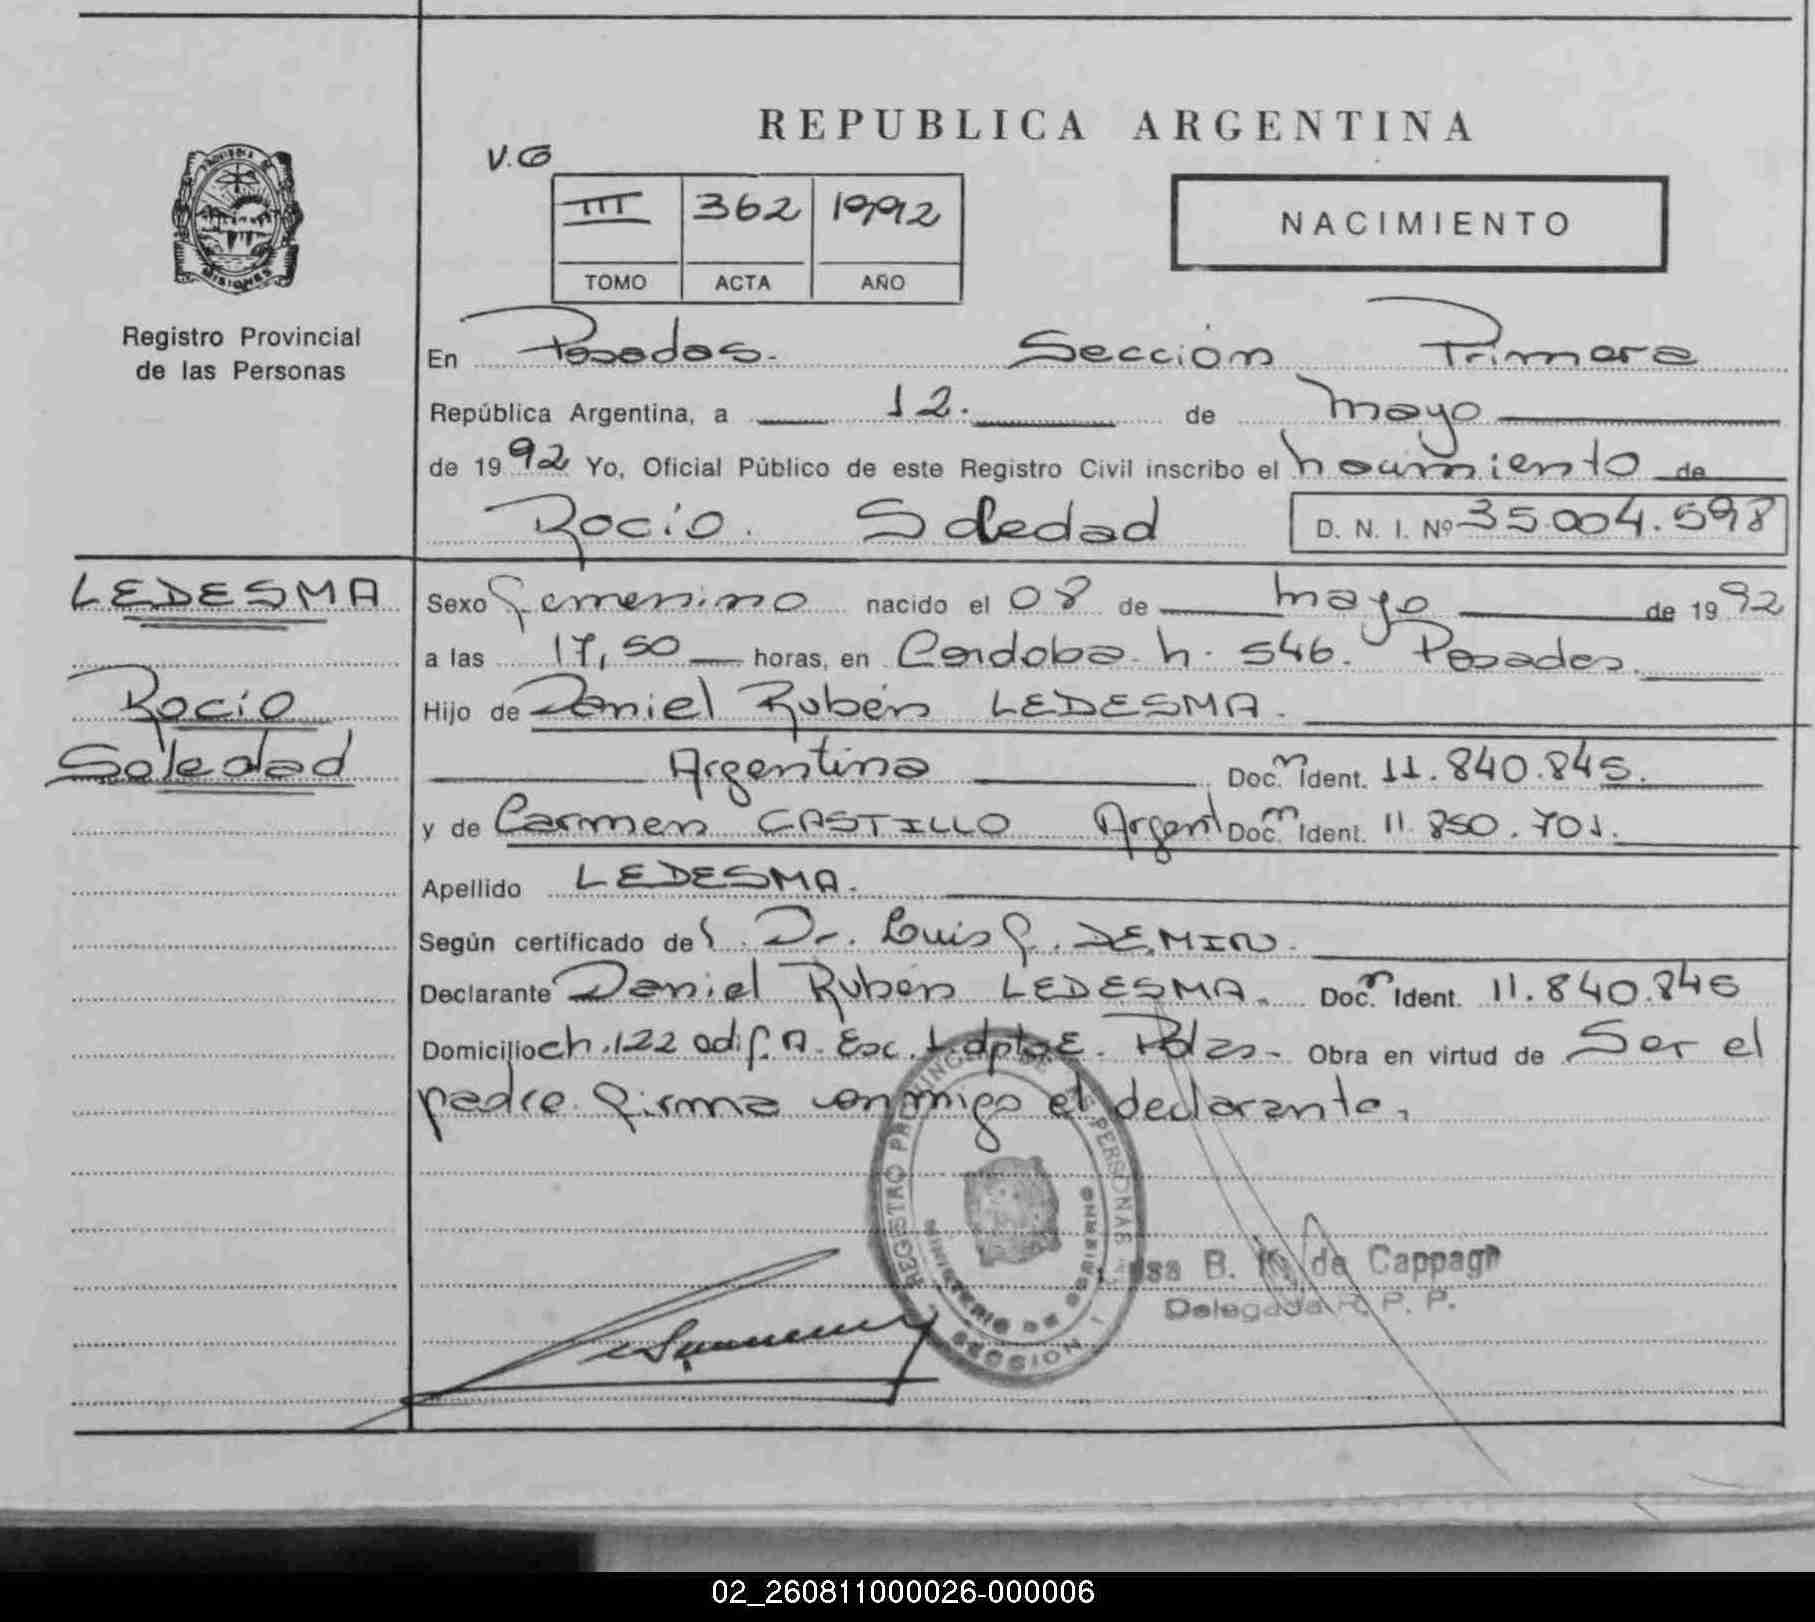 REPUBLICA ARGENTINA
V.G
III 362 1992
TOMO ACTA AÑO
NACIMIENTO
PROVINCIA DE
MISIONES
Registro Provincial
de las Personas
En Posadas. Sección Primera
República Argentina, a 12. de mayo
de 1992 Yo, Oficial Público de este Registro Civil inscribo el nacimiento de
Rocío. Soledad D. N. I. Nº 35.004.598
LEDESMA
Rocío
Soledad
Sexo femenino nacido el 08 de mayo de 1992
a las 17,50 horas, en Cordoba. n. 546. Posadas.
Hijo de Daniel Rubén LEDESMA.
Argentina Doc. Ident. 11.840.845.
y de Carmen CASTILLO Argent Doc. Ident. 11.850.701.
Apellido LEDESMA.
Según certificado del. Dr. Luis F. DEMIN.
Declarante Daniel Rubén LEDESMA. Doc. Ident. 11.840.845
Domicilio ch.122 edif. A. Esc. 1. dpto E. Pdas. Obra en virtud de Ser el
padre. firma conmigo el declarante.
REGISTRO PROVINCIAL DE LAS PERSONAS
MINISTERIO DE GOBIERNO
SECCION 1
B. de Cappag
Delegada R. P. P.
02_260811000026-000006